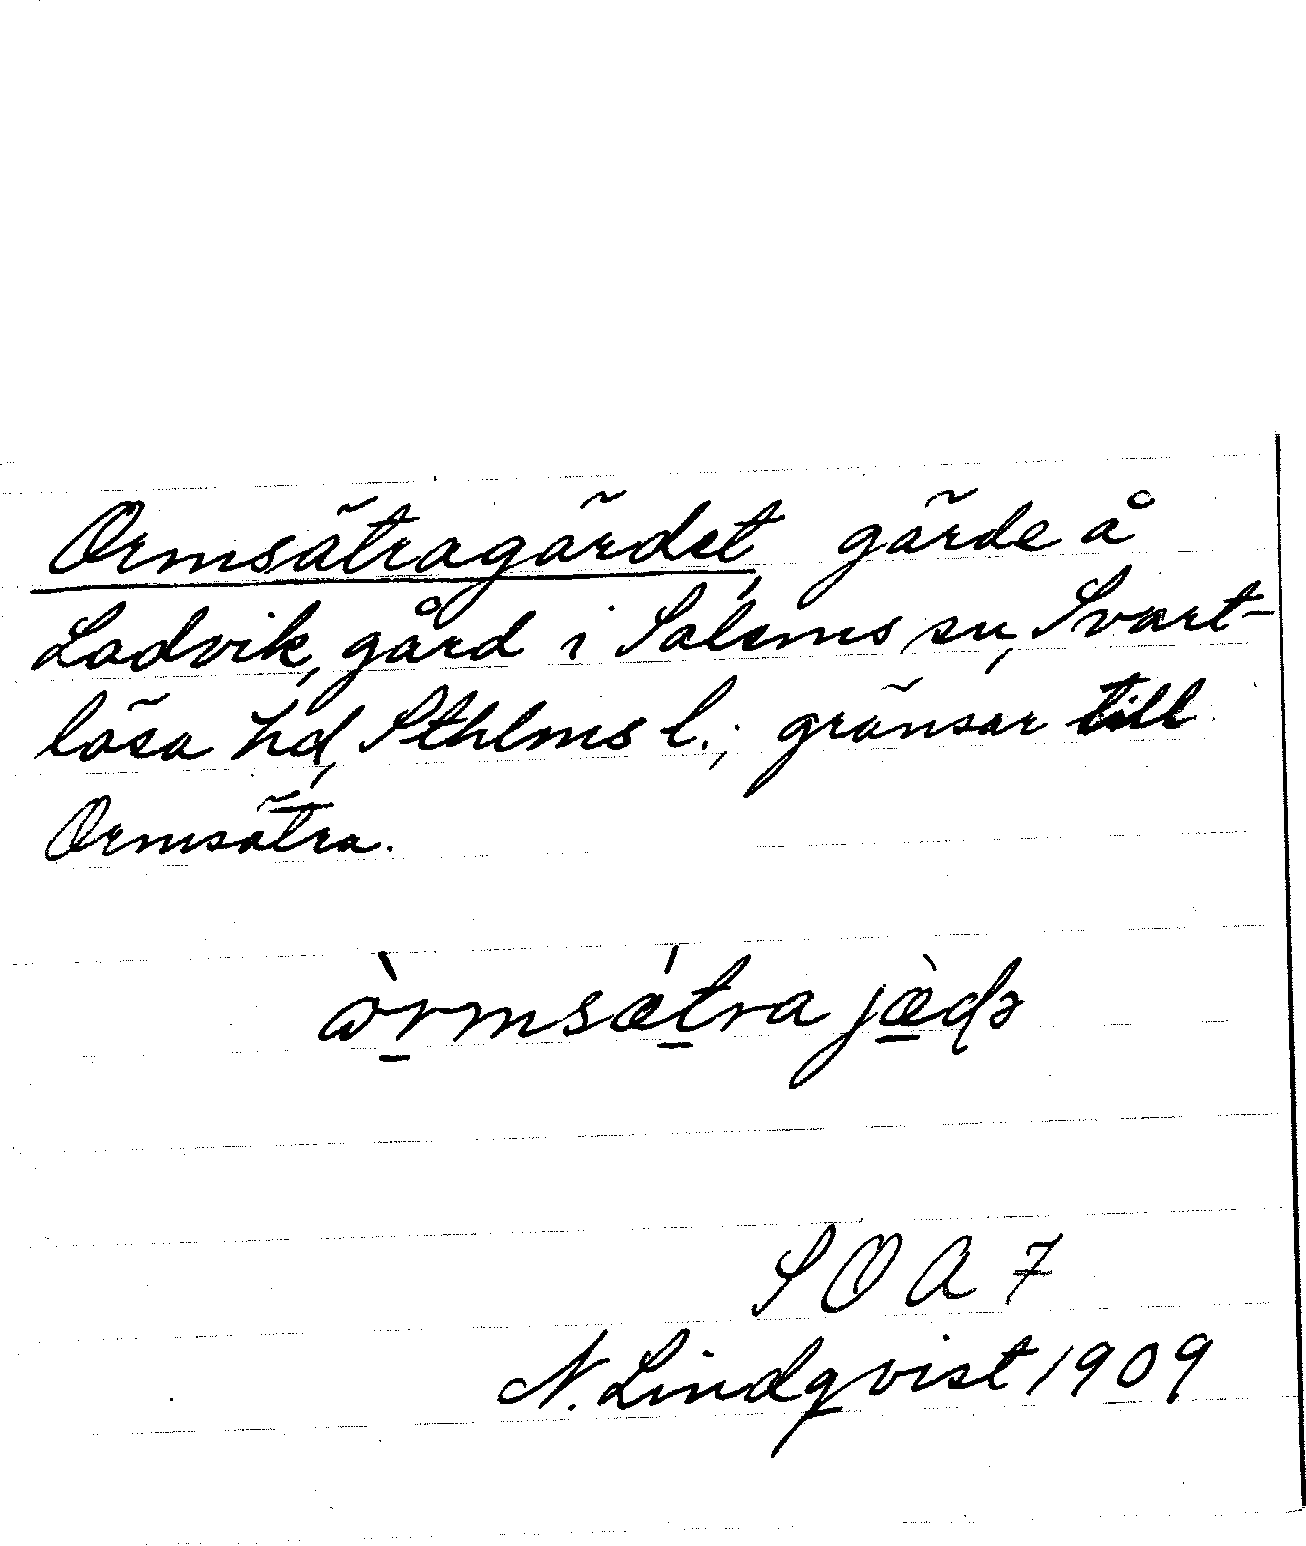 Ormsätragärdet, gärde å
Ladvik, gård i Salems sn, Svart-
lösa hd, Sthlms l.; gränsar till
Ormsätra.
ὼrmsǽtra jæ̀də
SOA 7
N. Lindqvist 1909